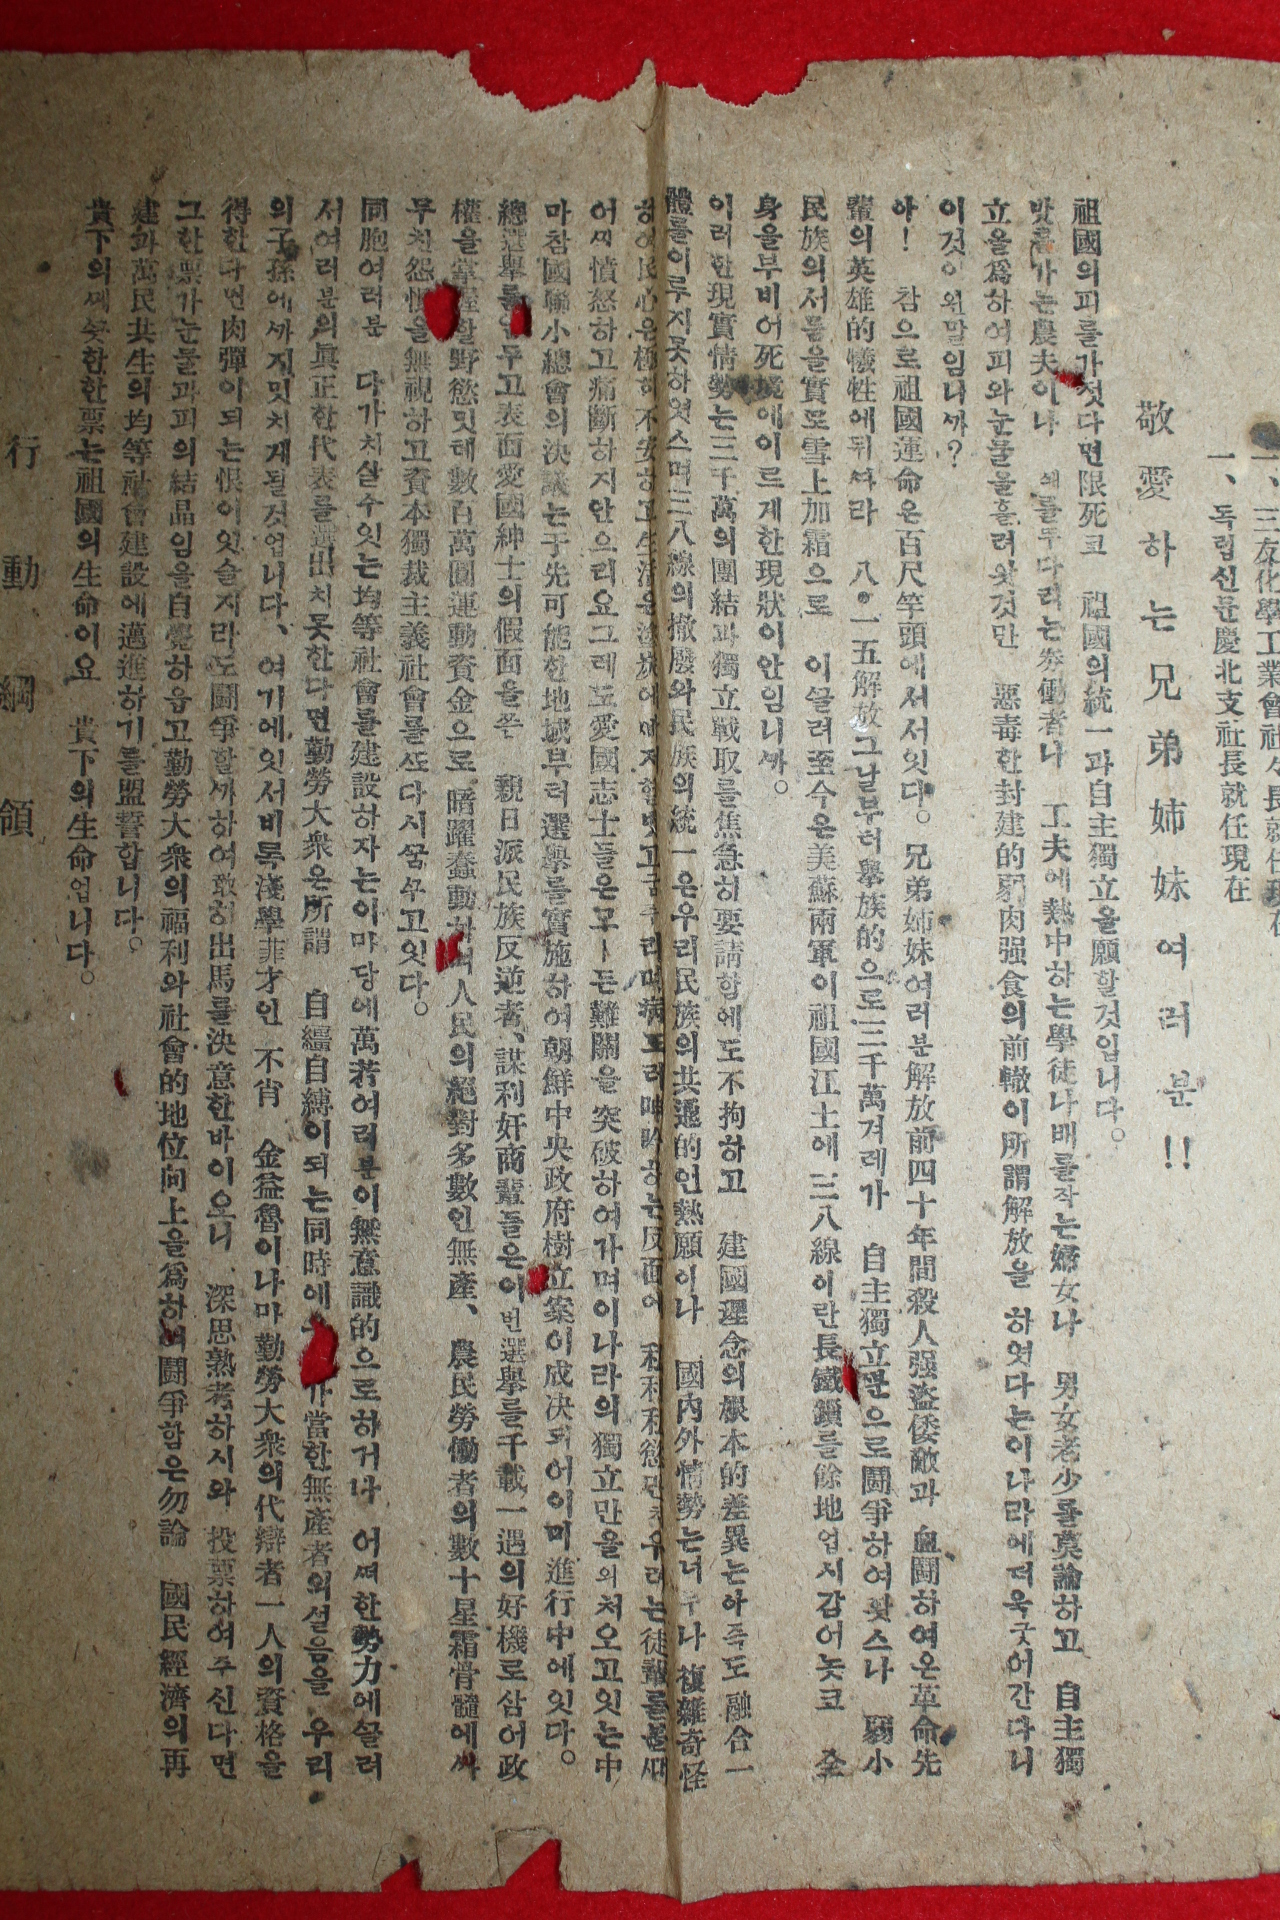 一、三友化學工業會社々長就任現在
一、독립신문慶北支社長就任現在
敬愛하는兄弟姉妹여러분!!
祖國의피를가젓다면限死코 祖國의統一과自主獨立을願할것입니다。
밧흘가는農夫이나 쇠를뚜다리는勞働者나 工夫에熱中하는學徒나배를작는婦女나 男女老少를莫論하고 自主獨
立을爲하여피와눈물을흘려왓것만 惡毒한封建的弱肉强食의前轍이所謂解放을 하엿다는이나라에더욱굿어간다니
이것이왼말임니까?
아! 참으로祖國運命은百尺竿頭에서서잇다。兄弟姉妹여러분解放前四十年間殺人强盜倭敵과 血鬪하여온革命先
輩의英雄的犧牲에뒤따라 八•一五解放그날부터擧族的으로三千萬겨레가 自主獨立만으로鬪爭하여왓스나 弱小
民族의서름을實로雪上加霜으로 이끌려至今은美蘇兩軍이祖國江土에三八線이란長鐵鎖를餘地업시감어놋코 全
身을부비어死境에이르게한現狀이안임니까。
이러한現實情勢는三千萬의團結과獨立戰取를焦急히要請함에도不拘하고 建國理念의根本的差異는아즉도融合一
體를이루지못하엿스며三八線의撤廢와民族의統一은우리民族의共通的인熱願이나 國內外情勢는너무나複雜奇怪
하여民心은極히不安하고生活은 주리며病드러呻吟하는反面에 私利私慾만 우려는徒輩를볼때
어찌憤怒하고痛斷하지안으리요그레도愛國志士들은모ー든難關을突破하여가며이나라의獨立만을외처오고잇는中
마참國聯小總會의決議는于先可能한地域부터選擧를實施하여朝鮮中央政府樹立案이成决되어이미進行中에잇다。
總選擧를 두고表面愛國紳士의假面을쓴 親日派民族反逆者、謀利奸商輩들은이번選擧를千載一遇의好機로삼어政
權을掌握할野慾밋테數百萬圓運動資金으로暗躍蠢動하며人民의絕對多數인無產、農民勞働者의數十星霜骨髓에싸
무친怨恨을無視하고資本獨裁主義社會를또다시꿈꾸고잇다。
同胞여러분 다가치살수잇는均等社會를建設하자는이마당에萬若여러분이無意識的으로하거나 어떠한勢力에끌려
서여러분의眞正한代表를選出치못한다면勤勞大衆은所謂 自繩自縛이되는同時에 가當한無產者의설음을 우리
의子孫에까지밋치게될것업니다、여기에잇서비록淺學菲才인 不肖 金益魯이나마勤勞大衆의代辯者一人의資格을
得한다면肉彈이되는恨이잇슬지라도鬪爭할까하여敢히出馬를決意한바이오니、深思熟考하시와 投票하여주신다면
그한票가눈물과피의結晶임을自覺하옵고勤勞大衆의福利와社會的地位向上을爲하여鬪爭함은勿論 國民經濟의再
建과萬民共生의均等社會建設에邁進하기를盟誓합니다。
貴下의께끗한한票는祖國의生命이요 貴下의生命업니다。
行動綱領